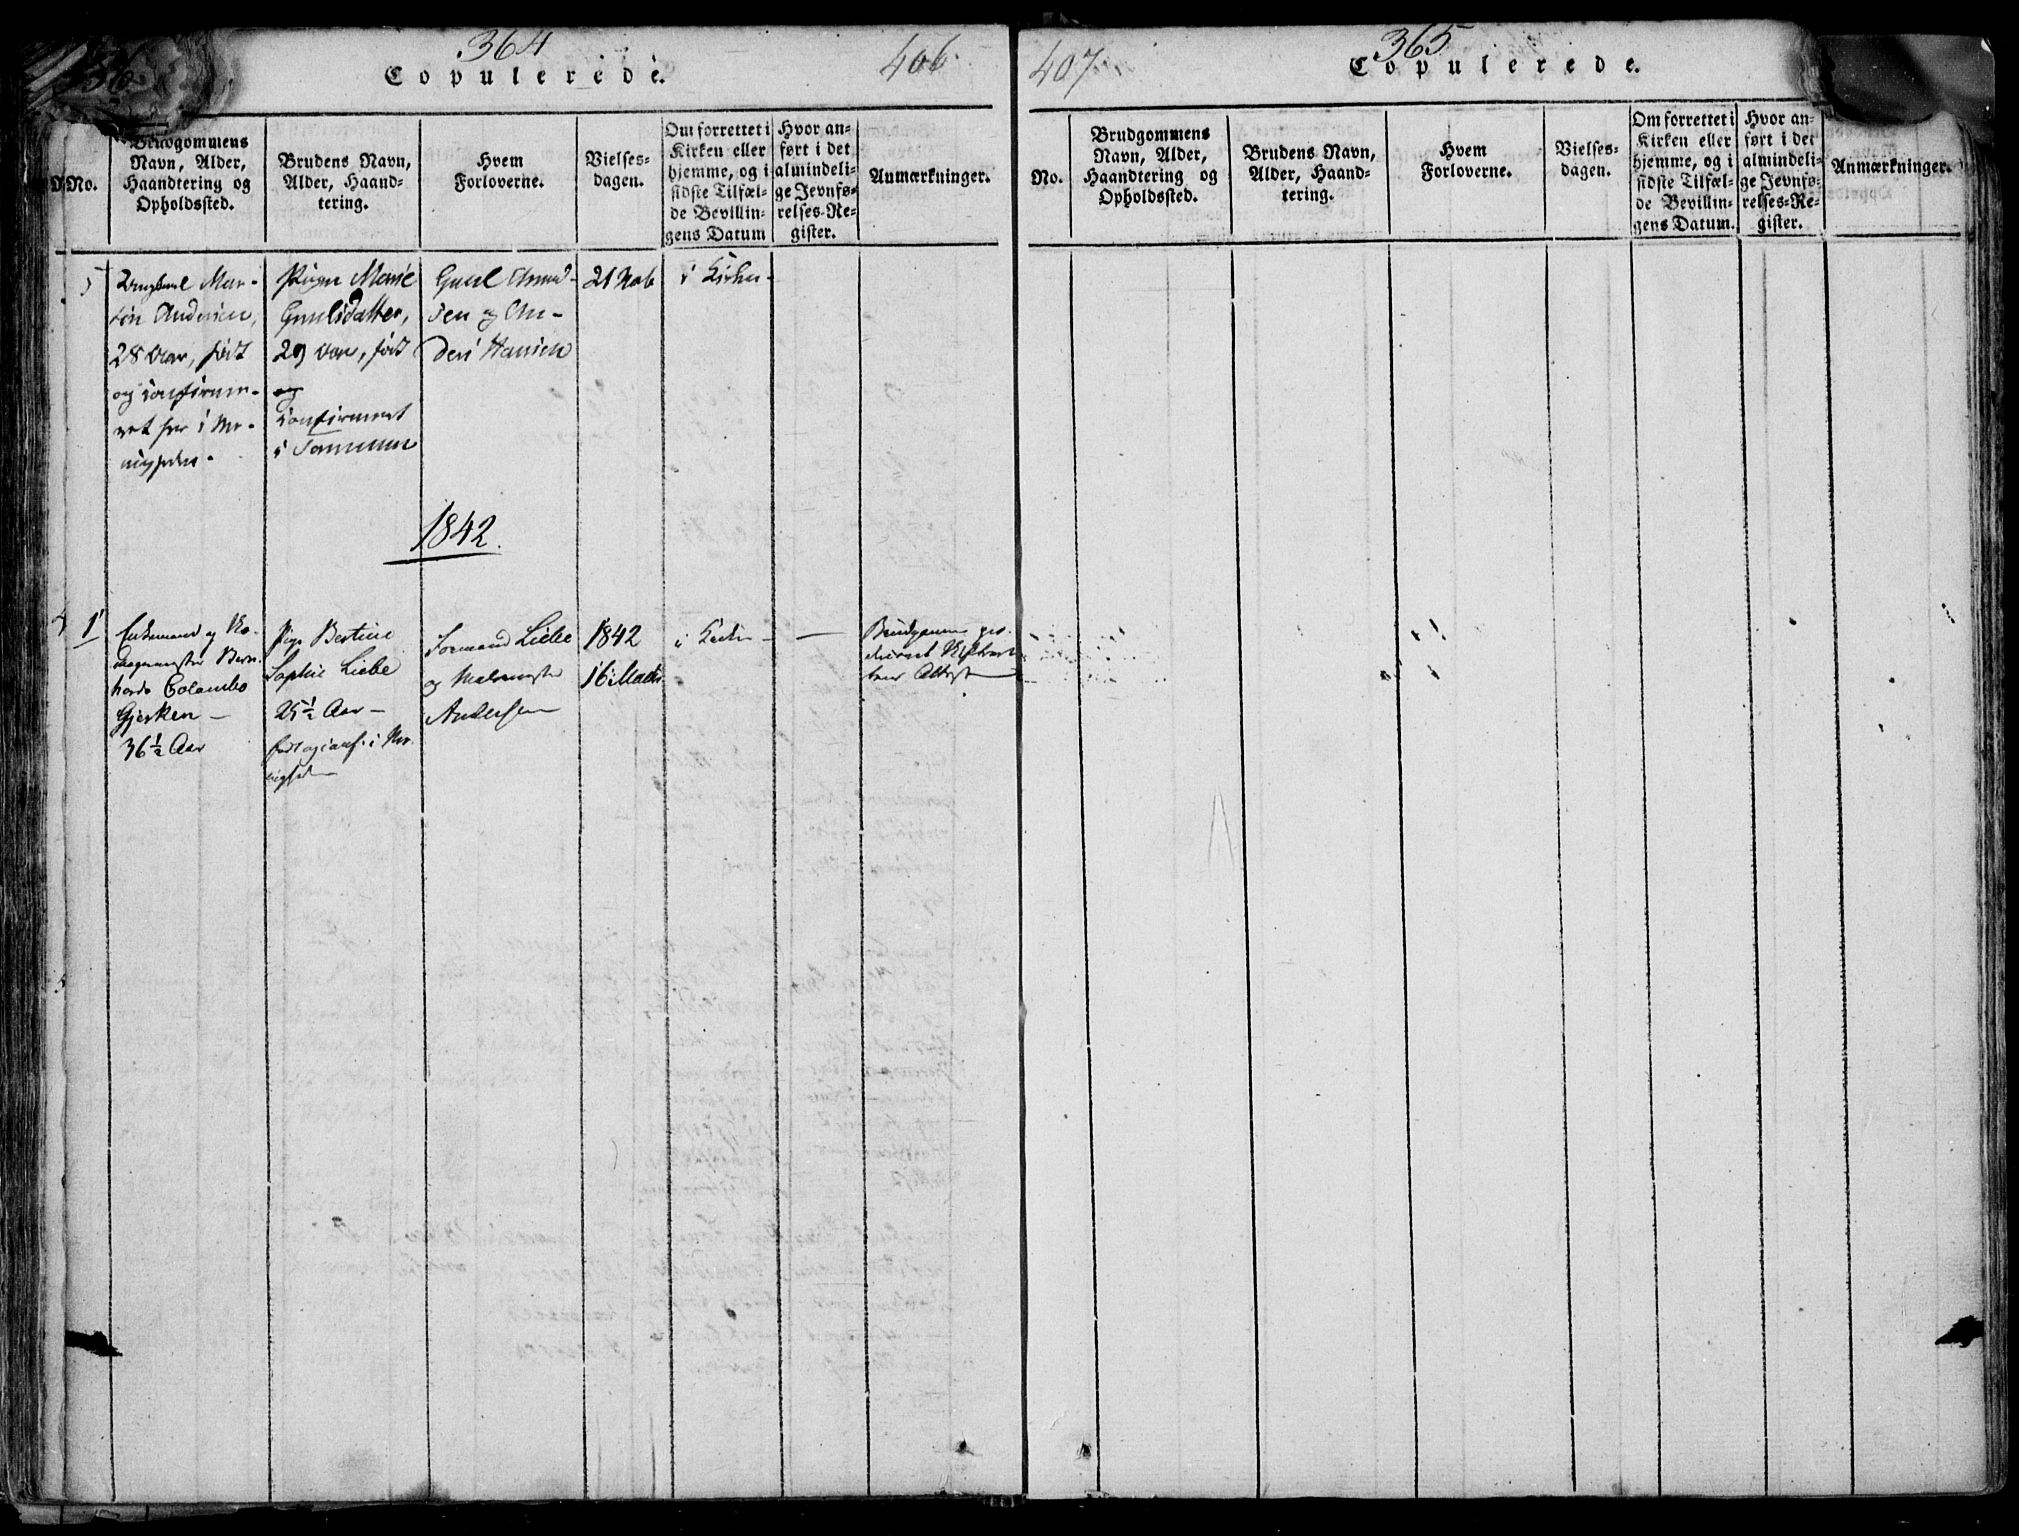 364
406.
Copulerede.
No.
Brudgommens
Navn, Alder,
Haandtering og
Opholdssted.
Brudens Navn,
Alder, Haand-
tering.
Hvem
Forloverne.
Vielses-
dagen.
Om forrettet i
Kirken eller
hjemme, og i
sidste Tilfæl-
de Bevillin-
gens Datum
Hvor an-
ført i det
almindeli-
ge Jevnfø-
relses-Re-
gister.
Anmærkninger.
5
Ungkarl Mar-
tin Andersen,
28 Aar, født
og confirme-
ret her i Me-
nigheden.
Pigen Marie
Gundsdatter,
29 Aar, født
og
confirmeret
i
og An-
ders Hansen
21 Nob
i Kirken
1842.
1
Enkemand og
Colombo
Gjerken
36½ Aar
Pige Bertine
Sophie Liebe
25½ Aar
født og conf. i Me-
nigheden
Formand Liebe
og
Andersen
1842
16 Marts
i Kirken
Brudgommens
Attest
407
365
Copulerede.
No.
Brudgommens
Navn, Alder,
Haandtering og
Opholdssted.
Brudens Navn,
Alder, Haand-
tering.
Hvem
Forloverne.
Vielses-
dagen.
Om forrettet i
Kirken eller
hjemme, og i
sidste Tilfæl-
de Bevillin-
gens Datum.
Hvor an-
ført i det
almindeli-
ge Jevnfø-
relses-Re-
gister.
Anmærkninger.